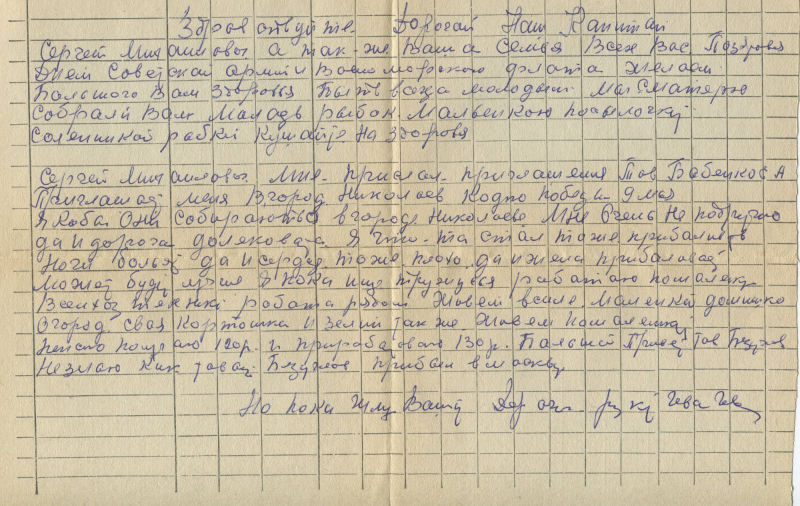 Здравствуйте. Дорогой Наш Капитан
Сергей Михаилович а так-же Ваша Семья Всех Вас Поздровля
Днем Советской армии и Военоморского флота желаем
Большого Вам Здоровья Быть всегда молодым мы с Матерью
Собрали Вам Маладь рыбок. Маленькою посылочку.
Соленинкой рабкй Кушайте На здоровя
Сергей Михаилович. Мне. прислал. приглашения Тов Бабенков А
Приглашает меня Вгород Николаев Кодню победы 9 мая
Якобы Они Собираються вгороде Николаеве Мне Очень Не
да и дорога далековата Я что-та стал тоже прибаливать
Ноги болят да и Сердце тоже плохо. да и жена прибаловает
Может будет лучше Я пока ище тружусь работаю помаленьку
работа рядом. Живем всвоем Маленкай домишко
Огород свая Картошка И зелин так же Живем помаленьку
Пенсию получаю 120р. и прирабатоваю 130р. Большой Привет Тов
Незнаю Как товар. прибыл в москву.
Но пока жму Вашу руку